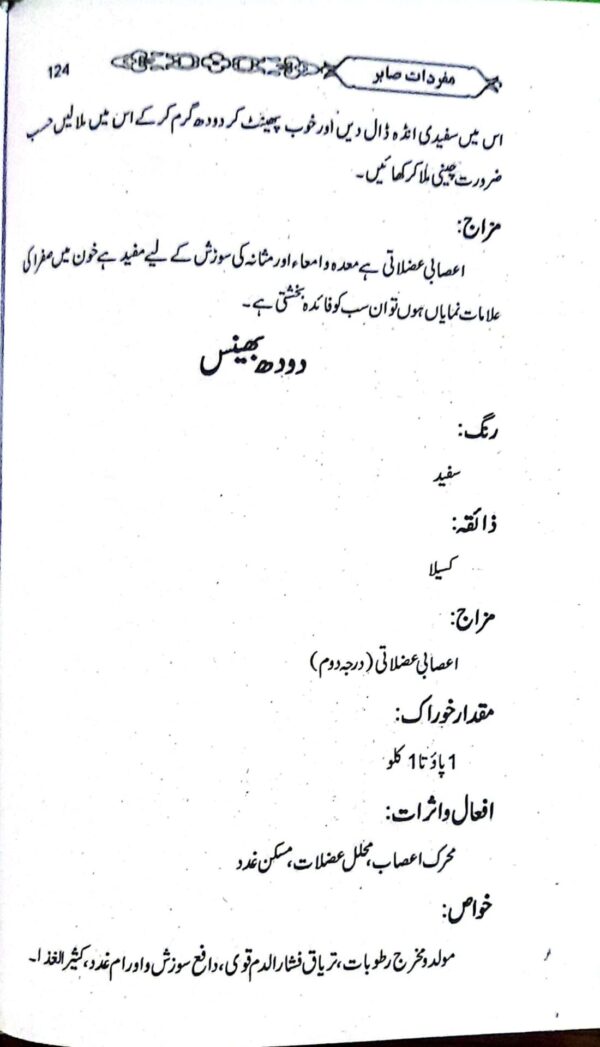 مفردات صابر
124
اس میں سفیدی انڈہ ڈال دیں اور خوب پھینٹ کر دودھ گرم کر کے اس میں ملا لیں حسب
ضرورت چینی ملا کر کھائیں۔
مزاج:
اعصابی عضلاتی ہے معدہ و امعاء اور مثانہ کی سوزش کے لیے مفید ہے خون میں صفرا کی
علامات نمایاں ہوں تو ان سب کو فائدہ بخشتی ہے۔
دودھ بھینس
رنگ:
سفید
ذائقہ:
کسیلا
مزاج:
اعصابی عضلاتی (درجہ دوم)
مقدار خوراک:
1 پاؤ تا 1 کلو
افعال و اثرات:
محرک اعصاب، محلل عضلات، مسکن غدد
خواص:
مولد و مخرج رطوبات، تریاق فشار الدم قوی، دافع سوزش و اورام غدد، کثیر الغذا۔